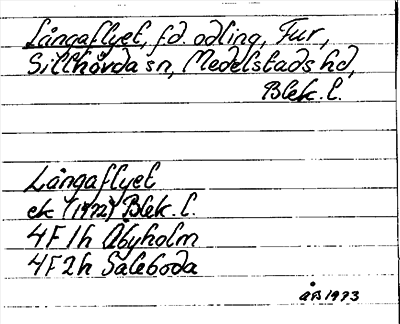 Långaflyet, f.d. odling, Fur,
Sillhövda sn, Medelstads hd,
Blek. l.
Långaflyet
ek (1972) Blek. l.
4F 1h Åbyholm
4F 2h Saleboda
ÅB 1973